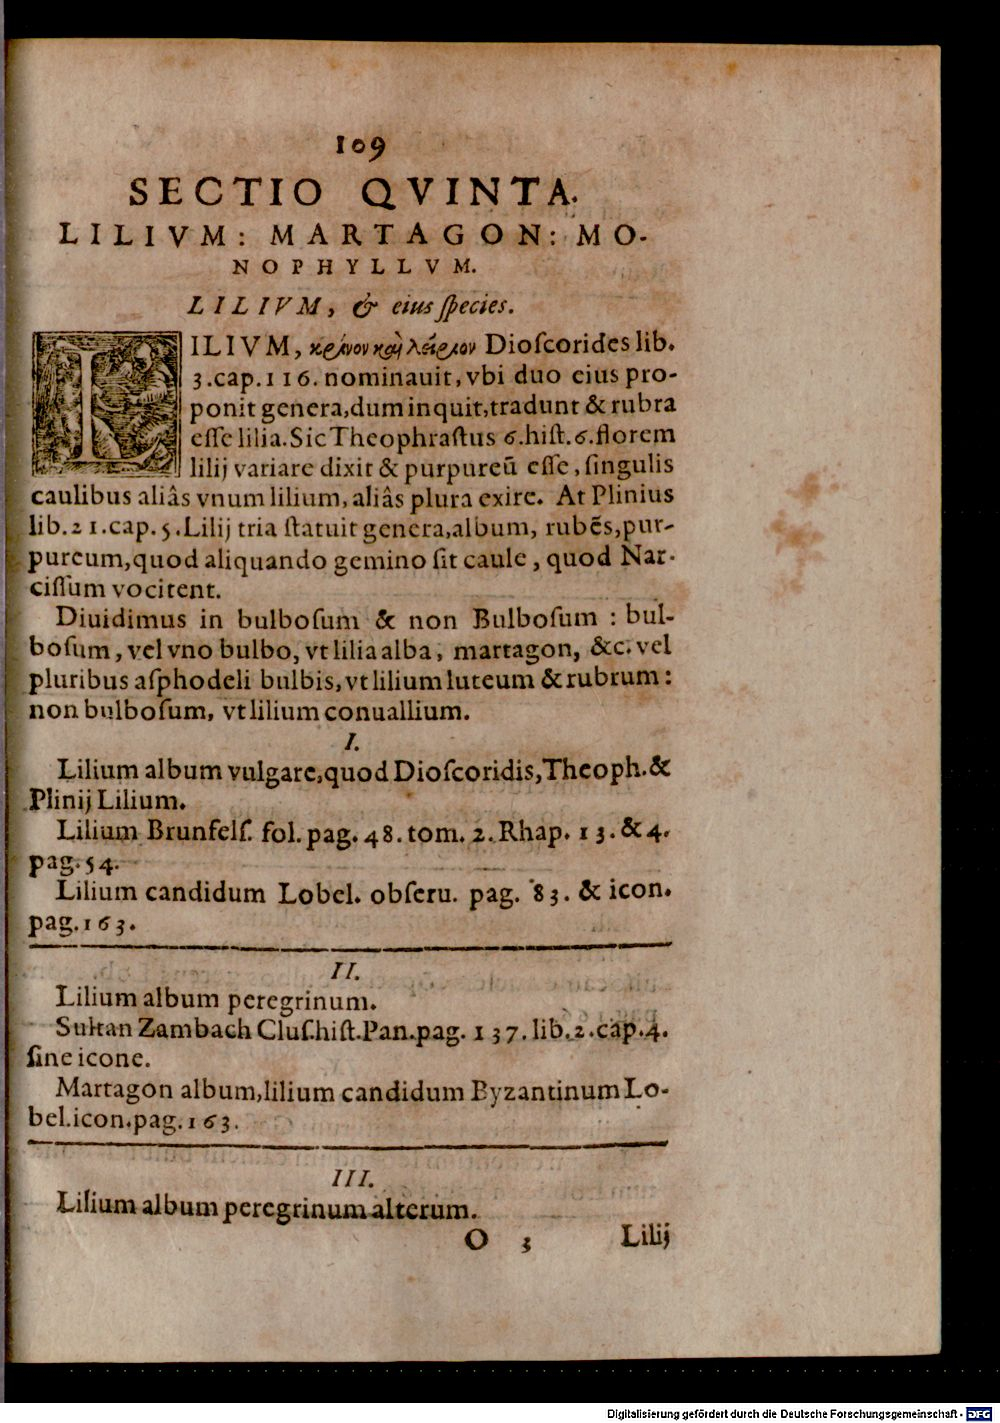 109
SECTIO QVINTA.
LILIVM: MARTAGON: MO-
NOPHYLLVM.
LILIVM, & eius ſpecies.
LILIVM, κρίνον καὶ λείριον Dioſcorides lib.
3.cap.116. nominauit, vbi duo eius pro-
ponit genera,dum inquit,tradunt & rubra
eſſe lilia. Sic Theophraſtus 6.hiſt.6.florem
lilij variare dixit & purpureū eſſe, ſingulis
caulibus aliâs vnum lilium, aliâs plura exire. At Plinius
lib.21.cap.5.Lilij tria ſtatuit genera,album, rubēs,pur-
pureum,quod aliquando gemino ſit caule, quod Nar-
ciſſum vocitent.
Diuidimus in bulboſum & non Bulboſum : bul-
boſum, vel vno bulbo, vt lilia alba, martagon, &c. vel
pluribus aſphodeli bulbis, vt lilium luteum & rubrum:
non bulboſum, vt lilium conuallium.
I.
Lilium album vulgare,quod Dioſcoridis,Theoph.&
Plinij Lilium.
Lilium Brunfelſ. fol. pag. 48. tom. 2. Rhap. 13. & 4.
pag. 54.
Lilium candidum Lobel. obſeru. pag. 83. & icon.
pag. 163.
II.
Lilium album peregrinum.
Sultan Zambach Cluſ.hiſt.Pan.pag. 137. lib.2.cap.4.
ſine icone.
Martagon album,lilium candidum Byzantinum Lo-
bel.icon.pag.163.
III.
Lilium album peregrinum alterum.
O 3 Lilij
Digitalisierung gefördert durch die Deutsche Forschungsgemeinschaft - DFG